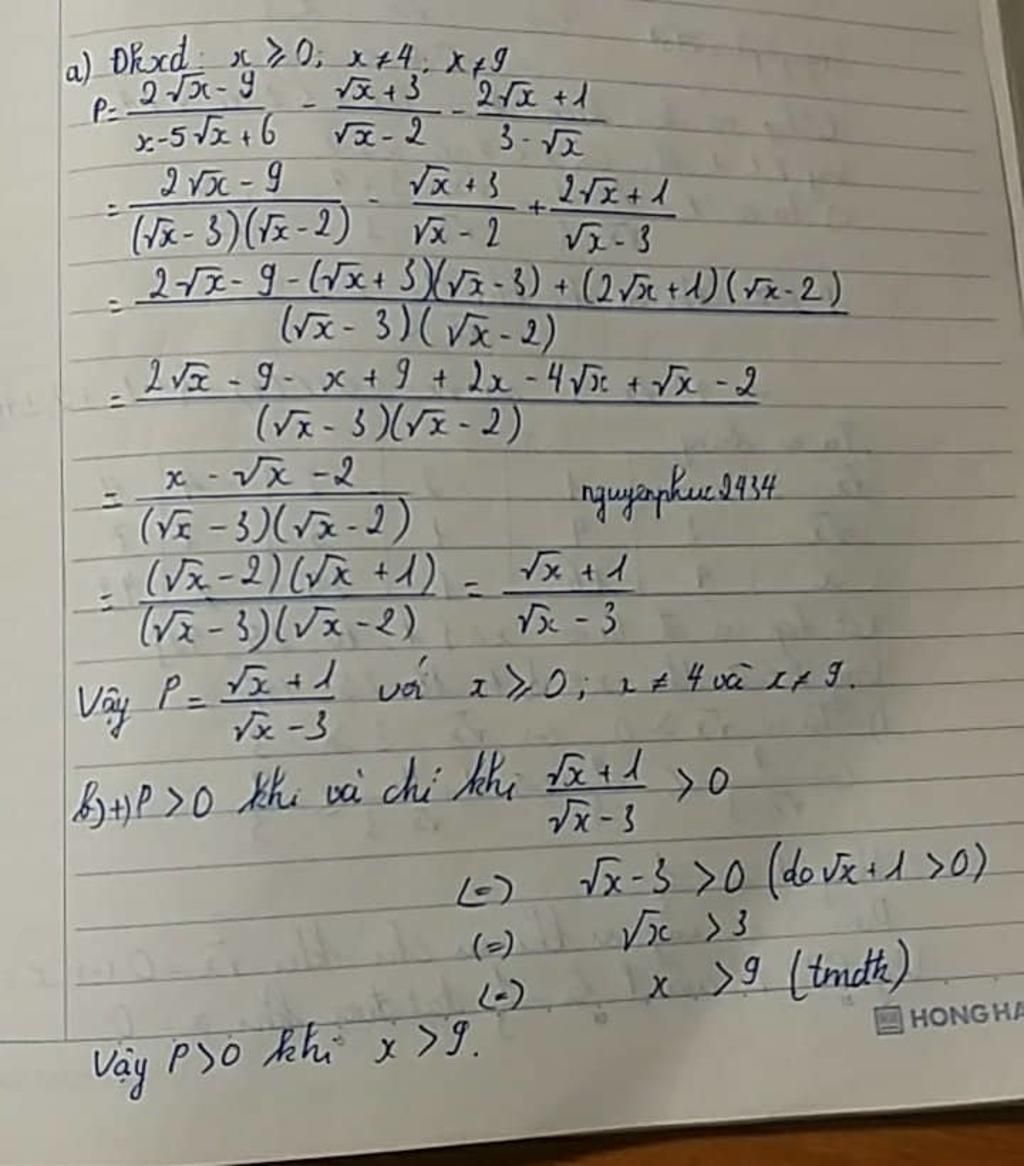 a) Đkxđ: x ≥ 0; x ≠ 4; x ≠ 9
P = (2√x - 9)/(x - 5√x + 6) - (√x + 3)/(√x - 2) - (2√x + 1)/(3 - √x)
= (2√x - 9)/((√x - 3)(√x - 2)) - (√x + 3)/(√x - 2) + (2√x + 1)/(√x - 3)
= (2√x - 9 - (√x + 3)(√x - 3) + (2√x + 1)(√x - 2))/((√x - 3)(√x - 2))
= (2√x - 9 - x + 9 + 2x - 4√x + √x - 2)/((√x - 3)(√x - 2))
= (x - √x - 2)/((√x - 3)(√x - 2)) nguyenphuc2434
= ((√x - 2)(√x + 1))/((√x - 3)(√x - 2)) = (√x + 1)/(√x - 3)
Vậy P = (√x + 1)/(√x - 3) với x ≥ 0; x ≠ 4 và x ≠ 9.
b) +) P > 0 khi và chỉ khi (√x + 1)/(√x - 3) > 0
(=) √x - 3 > 0 (do √x + 1 > 0)
(=) √x > 3
(=) x > 9 (tmđk)
HONG HA
Vậy P > 0 khi x > 9.